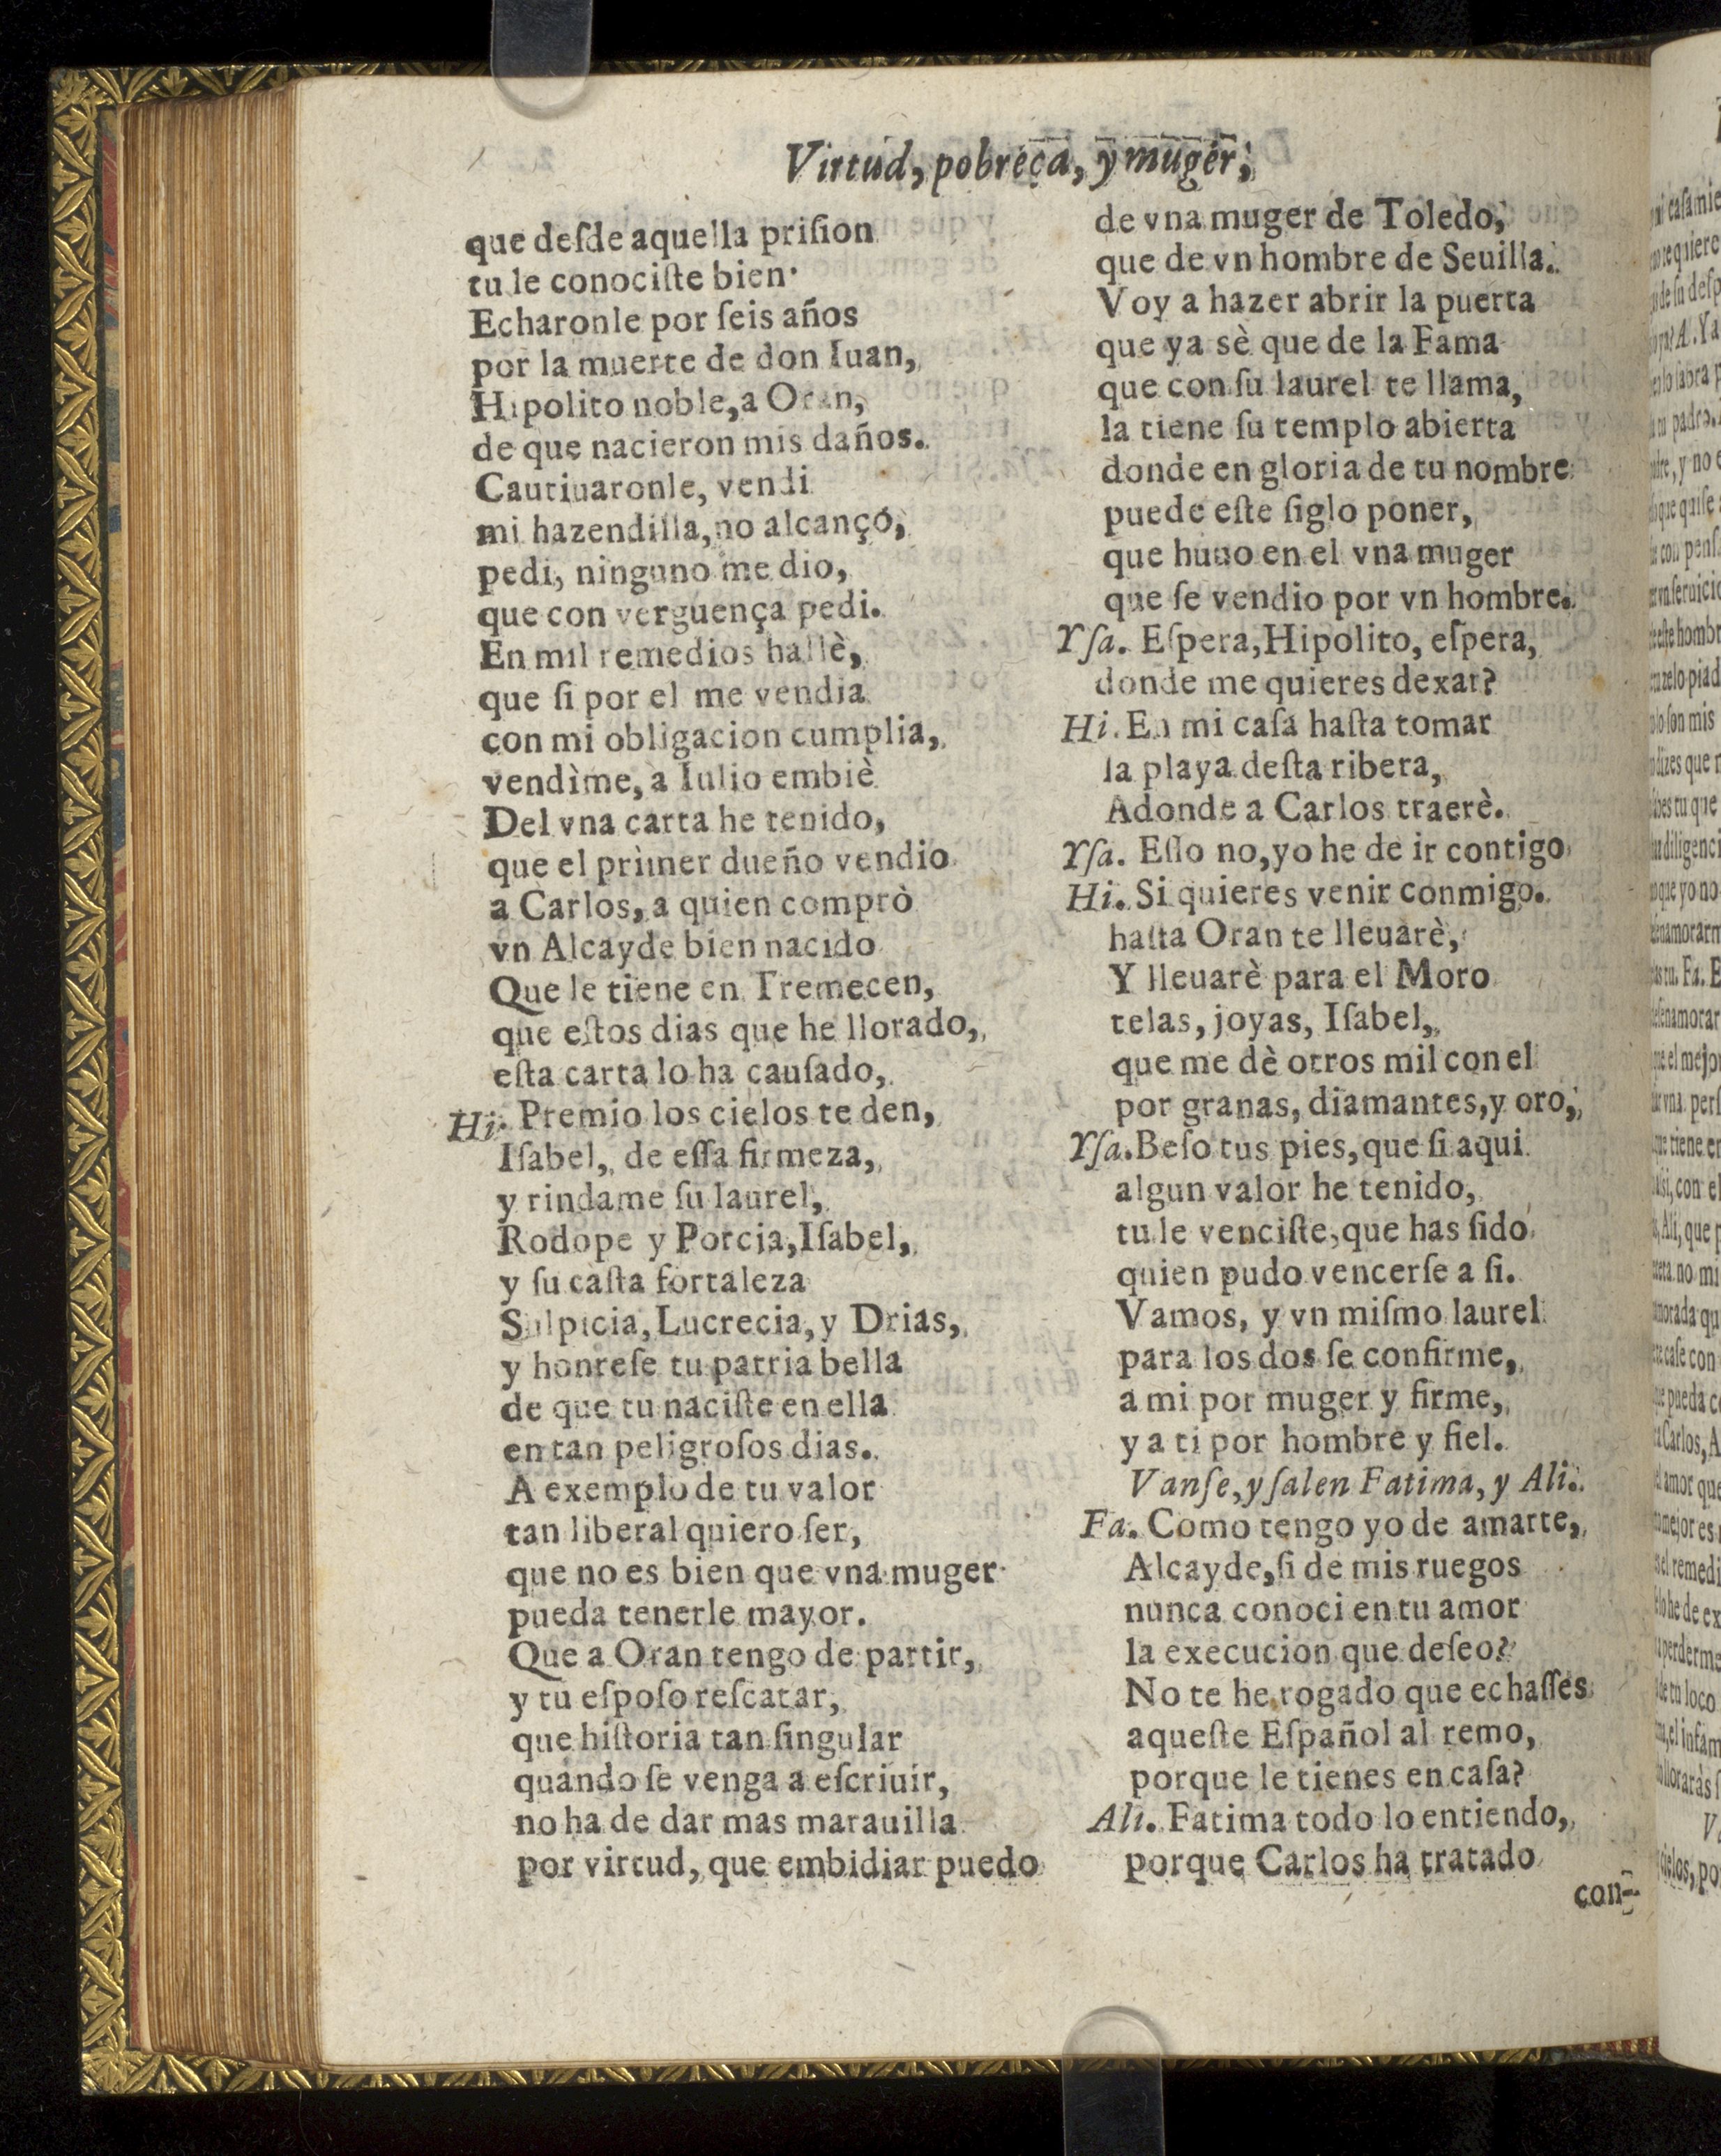 Virtud, pobreça, y muger,
que deſde aquella priſion
tu le conociſte bien.
Echaronle por ſeis años
por la muerte de don Iuan,
Hipolito noble, a Oran,
de que nacieron mis daños.
Cautiuaronle, vendi
mi hazendilla, no alcançó,
pedi, ninguno me dio,
que con verguença pedi.
En mil remedios hallè,
que ſi por el me vendia
con mi obligacion cumplia,
vendìme, a Iulio embiè
Del vna carta he tenido,
que el primer dueño vendio
a Carlos, a quien comprò
vn Alcayde bien nacido
Que le tiene en Tremecen,
que eſtos dias que he llorado,
eſta carta lo ha cauſado,
Hi. Premio los cielos te den,
Iſabel, de eſſa firmeza,
y rindame ſu laurel,
Rodope y Porcia, Iſabel,
y ſu caſta fortaleza
Sulpicia, Lucrecia, y Drias,
y honreſe tu patria bella
de que tu naciſte en ella
en tan peligroſos dias.
A exemplo de tu valor
tan liberal quiero ſer,
que no es bien que vna muger
pueda tenerle mayor.
Que a Oran tengo de partir,
y tu eſpoſo reſcatar,
que hiſtoria tan ſingular
quando ſe venga a eſcriuir,
no ha de dar mas marauilla
por virtud, que embidiar puedo
de vna muger de Toledo,
que de vn hombre de Seuilla.
Voy a hazer abrir la puerta
que ya sè que de la Fama
que con ſu laurel te llama,
la tiene ſu templo abierta
donde en gloria de tu nombre
puede eſte ſiglo poner,
que huuo en el vna muger
que ſe vendio por vn hombre.
Yſa. Eſpera, Hipolito, eſpera,
donde me quieres dexar?
Hi. En mi caſa haſta tomar
la playa deſta ribera,
Adonde a Carlos traerè.
Yſa. Eſſo no, yo he de ir contigo
Hi. Si quieres venir conmigo.
haſta Oran te lleuarè,
Y lleuarè para el Moro
telas, joyas, Iſabel,
que me dè otros mil con el
por granas, diamantes, y oro,
Yſa. Beſo tus pies, que ſi aqui
algun valor he tenido,
tu le venciſte, que has ſido
quien pudo vencerſe a ſi.
Vamos, y vn miſmo laurel
para los dos ſe confirme,
a mi por muger y firme,
y a ti por hombre y fiel.
Vanſe, y ſalen Fatima, y Ali.
Fa. Como tengo yo de amarte,
Alcayde, ſi de mis ruegos
nunca conoci en tu amor
la execucion que deſeo?
No te he rogado que echaſſes
aqueſte Eſpañol al remo,
porque le tienes en caſa?
Ali. Fatima todo lo entiendo,
porque Carlos ha tratado
con-